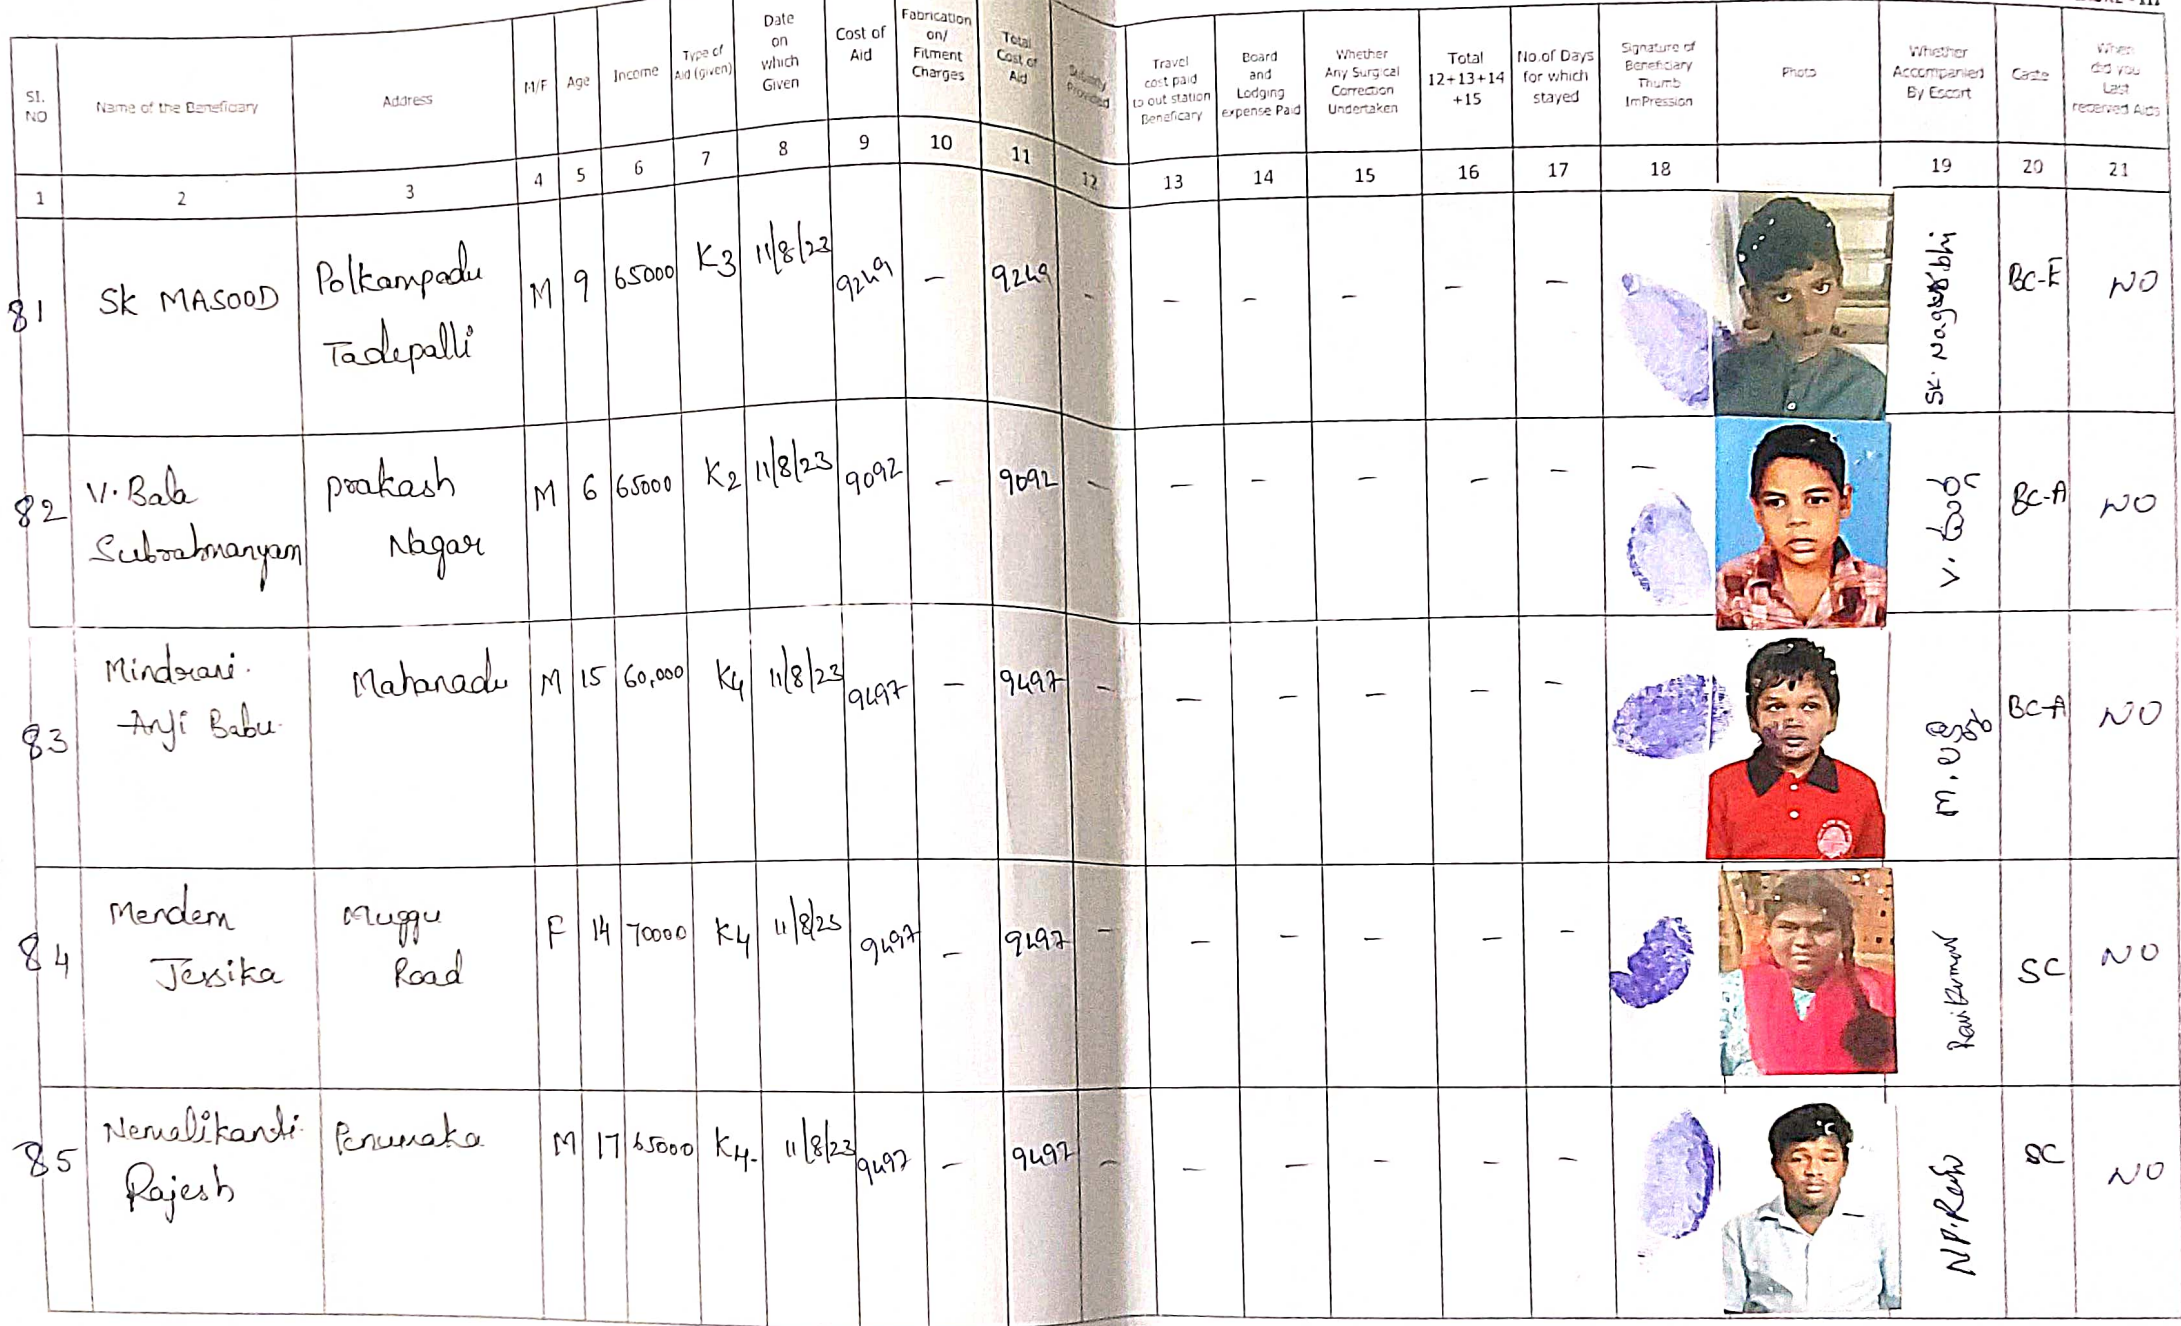 Sl. NO
Name of the Beneficiary
Address
M/F
Age
Income
Type of Aid (given)
Date on which Given
Cost of Aid
Fabrication on/ Fitment Charges
Total Cost of Aid
Subsidy Provided
Travel cost paid to out station Beneficary
Board and Lodging expense Paid
Whether Any Surgical Correction Undertaken
Total 12+13+14 +15
No.of Days for which stayed
Signature of Beneficiary Thumb ImPression
Photo
Whether Accompanied By Escort
Caste
When did you Last received Aids
1 2 3 4 5 6 7 8 9 10 11 12 13 14 15 16 17 18 19 20 21
81 Sk MASOOD Polkampadu M 9 65000 K3 11/8/23 9249 - 9249 - - - - - - SK. BC-E NO
Tadepalli
82 V. Bala prakash M 6 65000 K2 11/8/23 9092 - 9092 - - - - - - - V. BC-A NO
Subrahmanyam Nagar
83 Mindrani Mahanadu M 15 60,000 K4 11/8/23 9497 - 9497 - - - - - - M. BC-A NO
Anji Babu
84 Mendem Muggu F 14 70000 K4 11/8/23 9497 - 9497 - - - - - - Ravi Kumar SC NO
Jessika Road
85 Nemalikanti Penumaka M 17 65000 K4- 11/8/23 9497 - 9497 - - - - - - SC NO
Rajesh